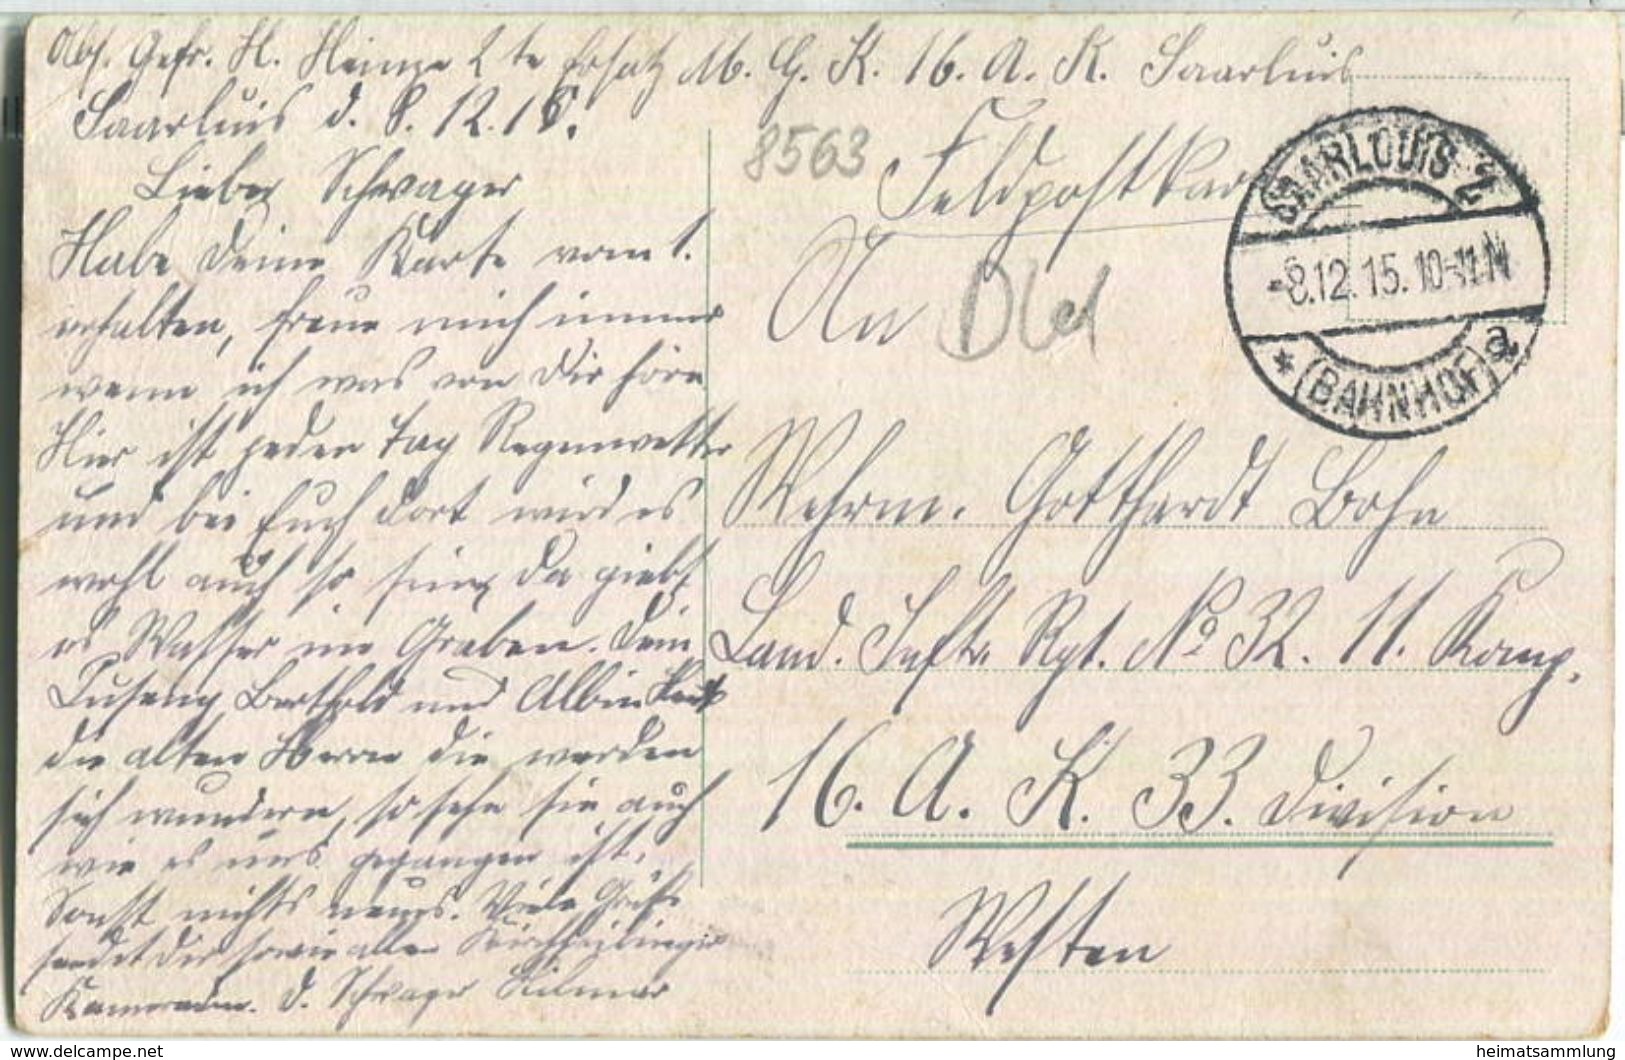 Abs. Gefr. H. Heinze 2te Ersatz M. G. K. 16. A. K. Saarluis
Saarluis d. 8. 12. 15.
Lieber Schwager
Habe Deine Karte vom 1.
erhalten, freue mich immer
wenn ich was von Dir höre
Hier ist jeden Tag Regenwetter
und bei Euch dort wird es
wohl auch so sein, da giebt
es Wasser im Graben. Dein
Berthold und Albin
die alten Herrn die werden
sich wundern, so sehn sie auch
wie es uns gegangen ist.
Sonst nichts neues. Viele Grüße
sendet Dir sowie allen
Kameraden. D. Schwager Hilmar
8563
Feldpostkarte
SAARLOUIS 2
-8.12.15.10-11.N
* (BAHNHOF) a
An
Wehrm. Gotthardt Bohn
Land. Inftr. Rgt. No 32. 11. Komp.
16. A. K. 33. Division
Westen
www.delcampe.net
heimatsammlung